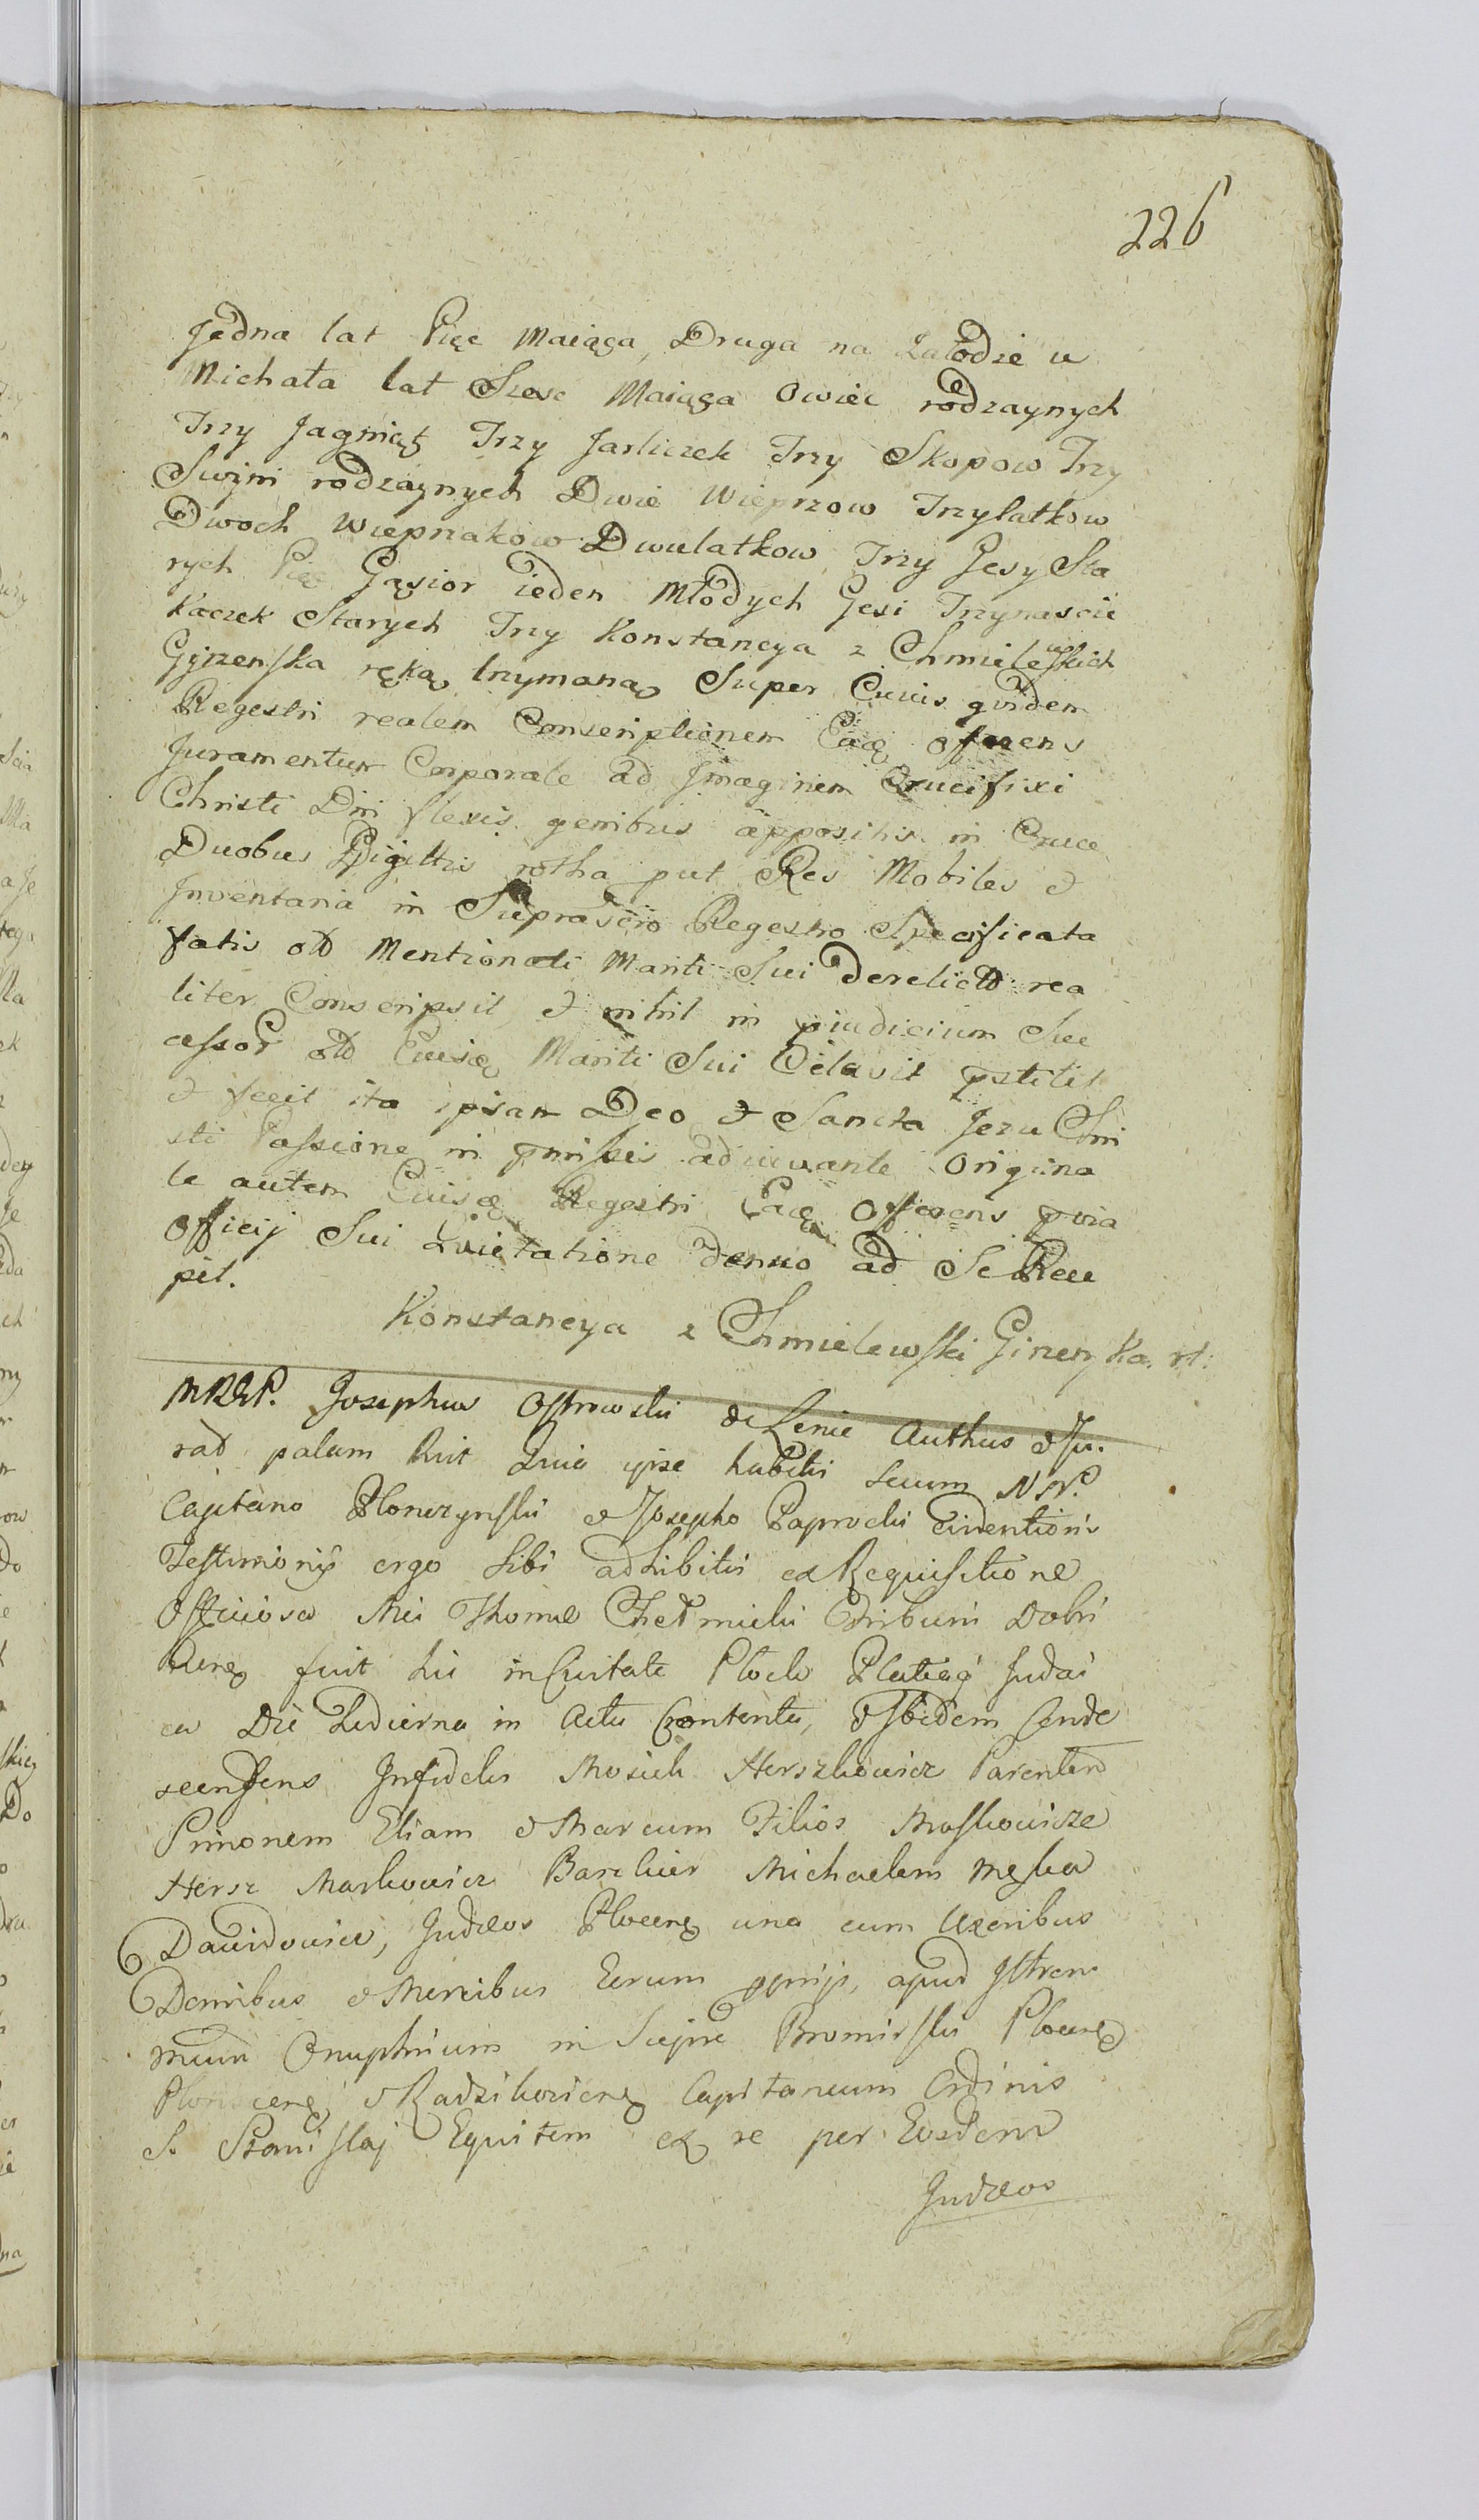 226
Jedna lat Pięc Maiąca, Druga na załodze u
Michała lat Szesc Maiąga Owiec rodzaynych
Trzy Jagniąt Trzy Jarliczek Trzy Skopow Trzy
Swyni rodzaynych Dwie Wieprzow Trzylatkow
Dwoch Wieprzakow Dwulatkow Trzy Gesy Sta
rych Pięc Gąsior ieden Młodych Gesi Trzynascie
Kaczek Starych Trzy Konstancya z Chmielewskich
Gyzenska ręką trzymaną Super Cuius quidem
Regestri realem Conscriptionem Eadę offerens
Juramentum Corporale ad Imaginem Crucifixi
Christi Dni flexis genibus appositis in Cruce
Duobus Digittis rotha put Res Mobiles &
Inventaria in Suprascto Regestro Specificata
fatis olb Mentionati Mariti Sui derelicta rea
liter Conscripsit, & nihil in piudicium Suc
cessor olb Eiusdę Mariti Sui Celavit pstitit
& fecit ita ipsam Deo & Sancta Jezu Chri
sti Passione in pmissis adiuvante Origina
le autem Eiusdę Regestri Eadę Offerens pvia
Officij Sui Quietatione denuo ad Se Rece
pit.
Konstancya z Chmielewski Girzenska. rt:
MRGP. Josephus Ostrowski de Lenie Authus & Ju.
rad palam huit Quia ipse habitis secum NN.
Capitano Płonczynski & Josepho Paprocki Evidentioris
Testimonij ergo Sibi adhibitis ex Requisitione
Officiosa Mci Thomæ Chełmicki Tribuni Dobri
nenę fuit hic in Civitate Plock Plateaę Judai
ca Die Hodierna in Actu Contenta, & Ibidem Conde
scendens Infidelis Mosiek Herszkowicz Parentem
Simonem Eliam & Marcum Filios Moskowicze
Hersz Markowicz Michaelem
Dawidowicz, Judæos Plocenę una cum Uxoribus
Domibus & Mercibus Eorum apud Mtrem
Onuphrium in Siepre Bromirski Plocenę
& Radzikovienę Capitaneum Ordinis
S. Stanislaj Equitem ex re per Eosdem
Judæos